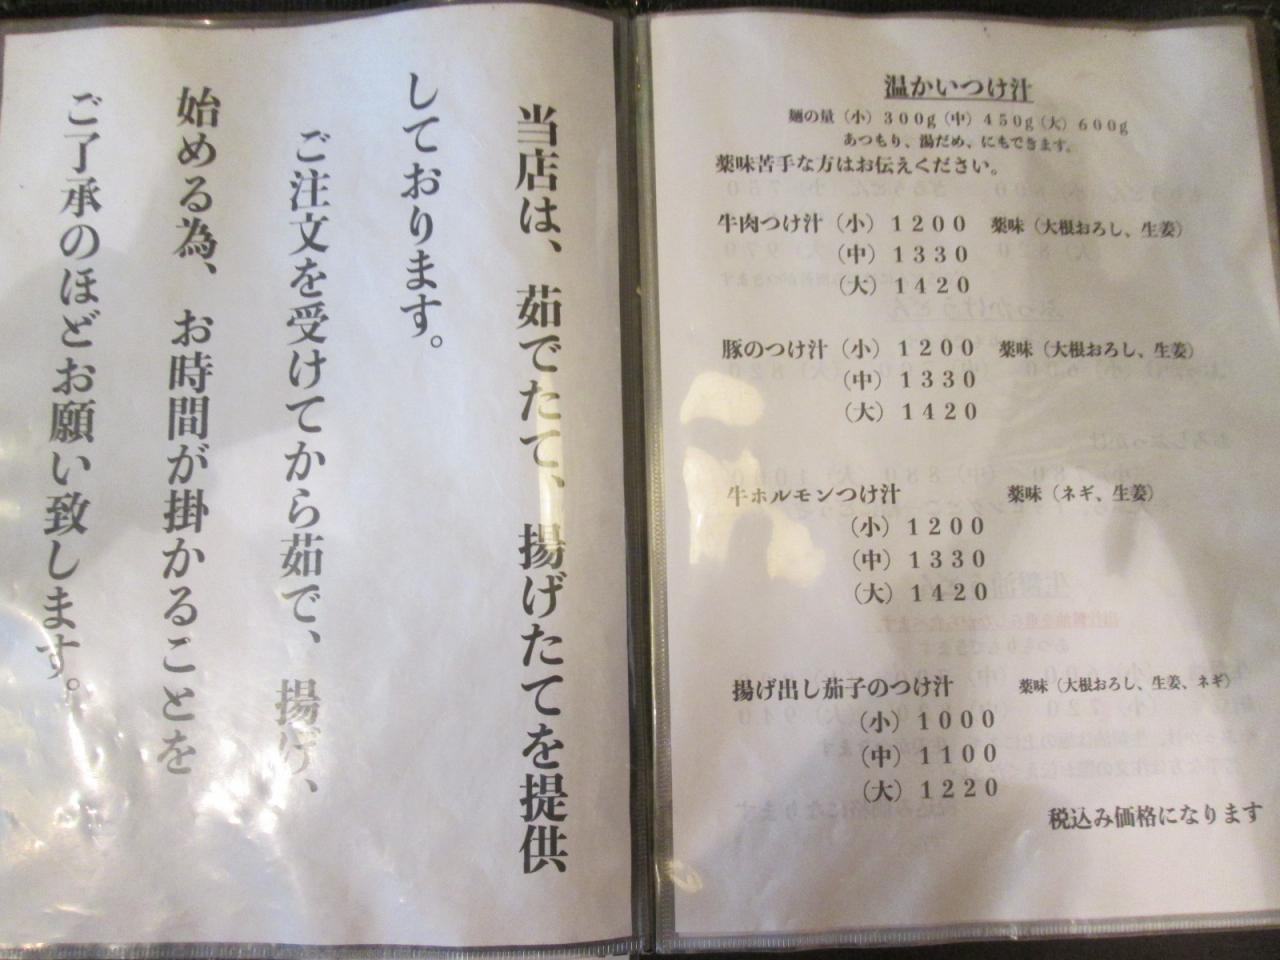 当店は、茹でたて、揚げたてを提供
しております。
ご注文を受けてから茹で、揚げ、
始める為、お時間が掛かることを
ご了承のほどお願い致します。
温かいつけ汁
麺の量（小）３００ｇ（中）４５０ｇ（大）６００ｇ
あつもり、湯だめ、にもできます。
薬味苦手な方はお伝えください。
牛肉つけ汁（小）１２００　薬味（大根おろし、生姜）
（中）１３３０
（大）１４２０
豚のつけ汁（小）１２００　薬味（大根おろし、生姜）
（中）１３３０
（大）１４２０
牛ホルモンつけ汁　薬味（ネギ、生姜）
（小）１２００
（中）１３３０
（大）１４２０
揚げ出し茄子のつけ汁　薬味（大根おろし、生姜、ネギ）
（小）１０００
（中）１１００
（大）１２２０
税込み価格になります